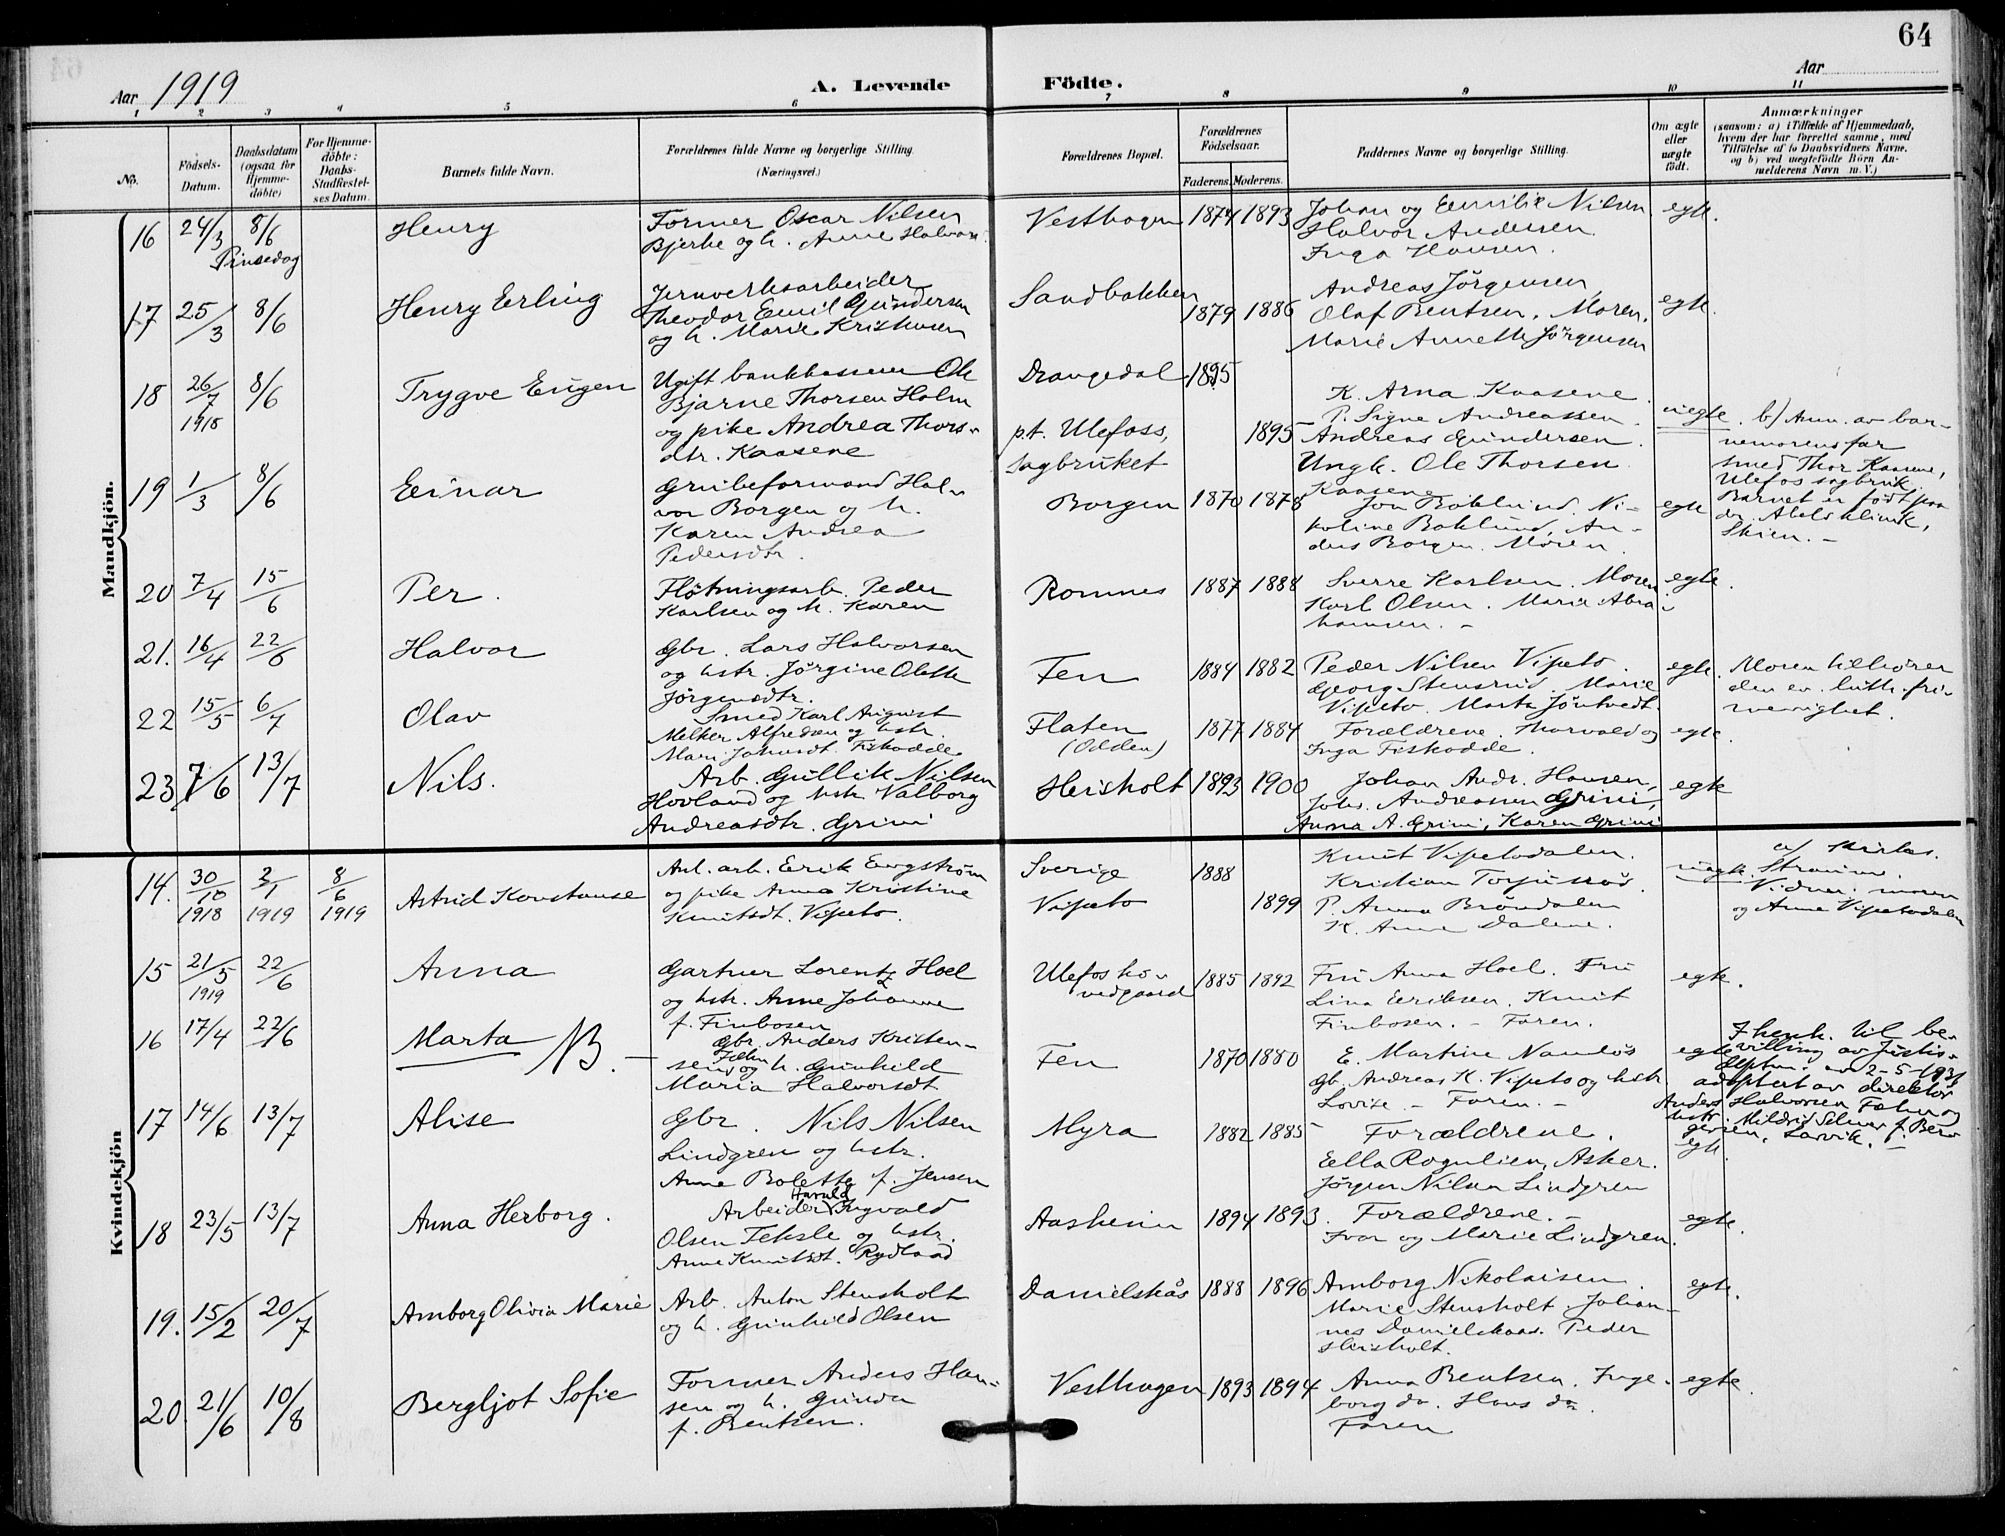 64
Aar 1919
A. Levende Födte.
Aar
1 2 3 4 5 6 7 8 9 10 11
No.
Födsels-Datum.
Daabsdatum (ogsaa for Hjemmedöbte)
For Hjemmedöbte: Daabs-Stadfæstelses Datum.
Barnets fulde Navn.
Forældrenes fulde Navne og borgerlige Stilling. (Næringsvei.)
Forældrenes Bopæl.
Forældrenes Födselsaar.
Faderens. Moderens.
Faddernes Navne og borgerlige Stilling.
Om ægte eller uægte født.
Anmærkninger
(saasom: a) i Tilfælde af Hjemmedaab, hvem der har forrettet samme, med Tilføielse af to Daabsvidners Navne, og b) ved uegtefödte Börn Anmelderens Navn m. V.)
Mandkjön.
16 24/3 8/6 Pinsedag Henry
Former Oscar Nilsen
Bjerke og h. Anne Halvors.
Vesthagen 1874 1893
Johan og Emilie Nilsen
Halvor Andersen
Inga Hansen.
egte.
17 25/3 8/6 Henry Erling
Jernverksarbeider
Theodor Emil Gundersen
og h. Marie Kristiansen
Sandbakken 1879 1886
Andreas Jörgensen,
Olaf Bentsen, Moren.
Marie Annette Jörgensen
egte.
18 26/7 1918 8/6 Trygve Eugen
Ugift bankkasserer Ole
Bjarne Thorsen Holm
og pike Andrea Thors-
dtr. Kaasene
Drangedal 1895
p.t. Ulefoss, 1895
Sagbruket
K. Arna Kaasene.
P. Signe Andreassen.
Andreas Gundersen.
Ungk. Ole Thorsen
Kaasene
uegte. b) Anm. av bar-
nemorens far
smed Thor Kaasene,
Ulefos sagbruk.
Barnet er født paa
dr. Abels klinik,
Skien. -
19 1/3 8/6 Einar
Grubeformand Hal-
vor Borgen og h.
Karen Andrea
Pedersdtr.
Borgen 1870 1878
Jon Boklund. Ni-
koline Boklund, An-
ders Borgen. Moren.
egte
20 7/4 15/6 Per.
Fløtningsarb. Peder
Karlsen og h. Karen
Romnes 1887 1888
Sverre Karlsen. Moren
Karl Olsen. Marie Abra-
hamsen. -
egte.
21. 16/4 22/6 Halvor
Gbr. Lars Halvorsen
og hstr. Jörgine Olette
Jörgensdtr.
Fen 1884 1882
Peder Nilsen Vipeto.
Georg Stensrud. Marie
Vipeto. Marta Jöntvedt.
egte.
Moren tilhører
den ev. luth. fri-
menighet.
22 15/5 6/7 Olav
Smed Karl August
Melker Alfredsen og hstr.
Flaten
(Odden) 1877 1884
Forældrene. Thorvald og
Inga Fiskodde.
egte.
23 7/6 13/7 Nils.
Arb. Gullik Nilsen
Hovland og hstr Valborg
Andreasdtr. Grini
Heisholt 1893 1900
Johan Andr. Hansen,
Johs. Andreassen Grini,
Anna A. Grini, Karen Grini
egte
Kvindekjön
14. 30/10 1918 2/1 1919 8/6 1919 Astrid Konstanse
Anl. arb. Erik Engström
og pike Anna Kristine
Knutsdt. Vipeto.
Sverige 1888
Vipeto 1899
Knut Vipetodalen.
Kristian Torjusrød.
P. Anna Brøndalen
K. Anne Dalene.
uegte.
a) Kirkes.
Straume.
Vidner: moren
og Anne Vipetodalen
15 21/5 1919 22/6 Anna
Gartner Lorentz Hoel
og hstr. Anne Johanne
f. Finbosen
Ulefos ho-
vedgaard 1885 1892
Fru Anna Hoel. Fru
Lina Eriksen. Knut
Finbosen. - Faren.
egte.
16 17/4 22/6 Marta NB. -
Gbr. Anders Kristen-
sen Fæhn og h. Gunhild
Maria Halvorsdt
Fen 1870 1880
E. Martine Namløs
Gb. Andreas K. Vipeto og hstr
Lovise. - Faren. -
egte
I henh. til be-
villing av Justis-
dptm. av 2-5-1931
adoptert av direktör
Anders Halvorsen Fæhn og
hstr. Mildrid Selmer f. Berg
gersen, Larvik. -
17 14/6 13/7 Alise
Gbr. Nils Nilsen
Lindgren og hstr.
Anne Bolette f. Jensen
Myra 1882 1885
Forældrene.
Ella Rognlien, Asker.
Jörgen Nilsen Lindgren
egte.
18 23/5 13/7 Anna Herborg.
Arbeider Harald Ingvald
Olsen Teksle og hstr.
Anne Knutsdt. Rydland
Aasheim 1894 1893.
Forældrene. -
Ivar og Marie Lindgren.
egte.
19. 15/2 20/7 Amborg Olivia Marie
Arb. Anton Stensholt
og h. Gunhild Olsen
Danielskås 1888 1896
Amborg Nikolaisen.
Marie Stensholt, Johan-
nes Danielskaas. Peder
Heisholt.
egte.
20 21/6 10/8 Bergljot Sofie
Former Anders Han-
sen og h. Gunda
f. Bentsen.
Vesthagen 1893 1894
Anna Bentsen. Inge-
borg do. Hans do.
Faren
egte.